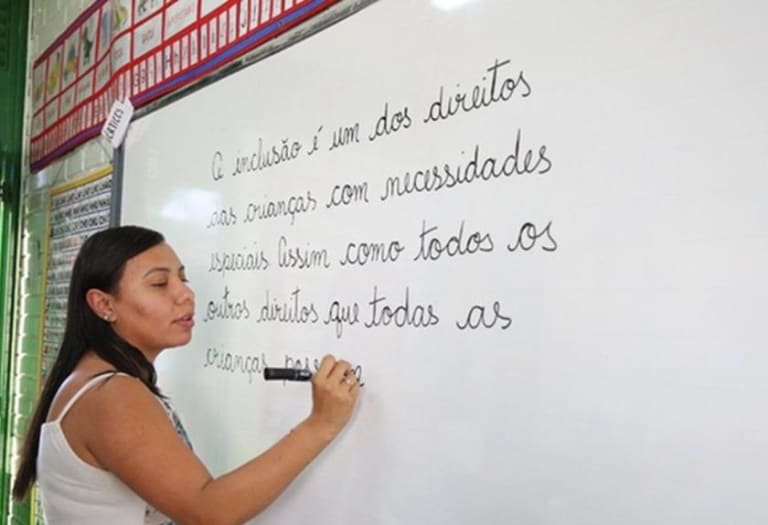 A inclusão é um dos direitos
das crianças com necessidades
especiais Assim como todos os
outros direitos que todas as
crianças